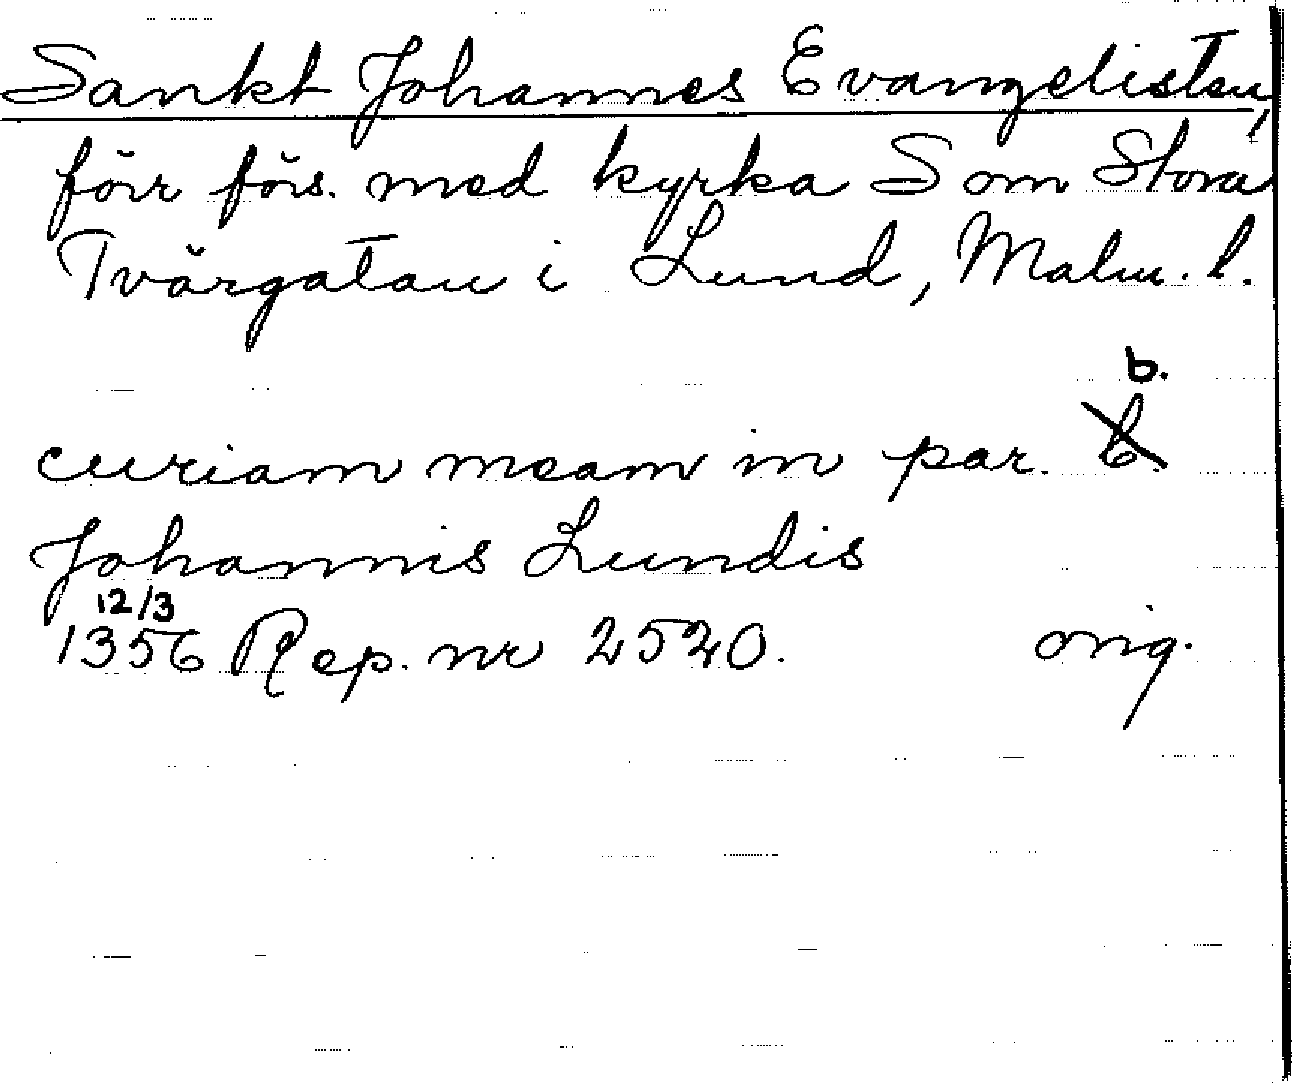 Sankt Johannes Evangelisten,
förr förs. med kyrka S om Stora
Tvärgatan i Lund, Malm. l.
b.
curiam meam in par. b.
Johannis Lundis
12/3
1356 Rep. nr 2520. orig.